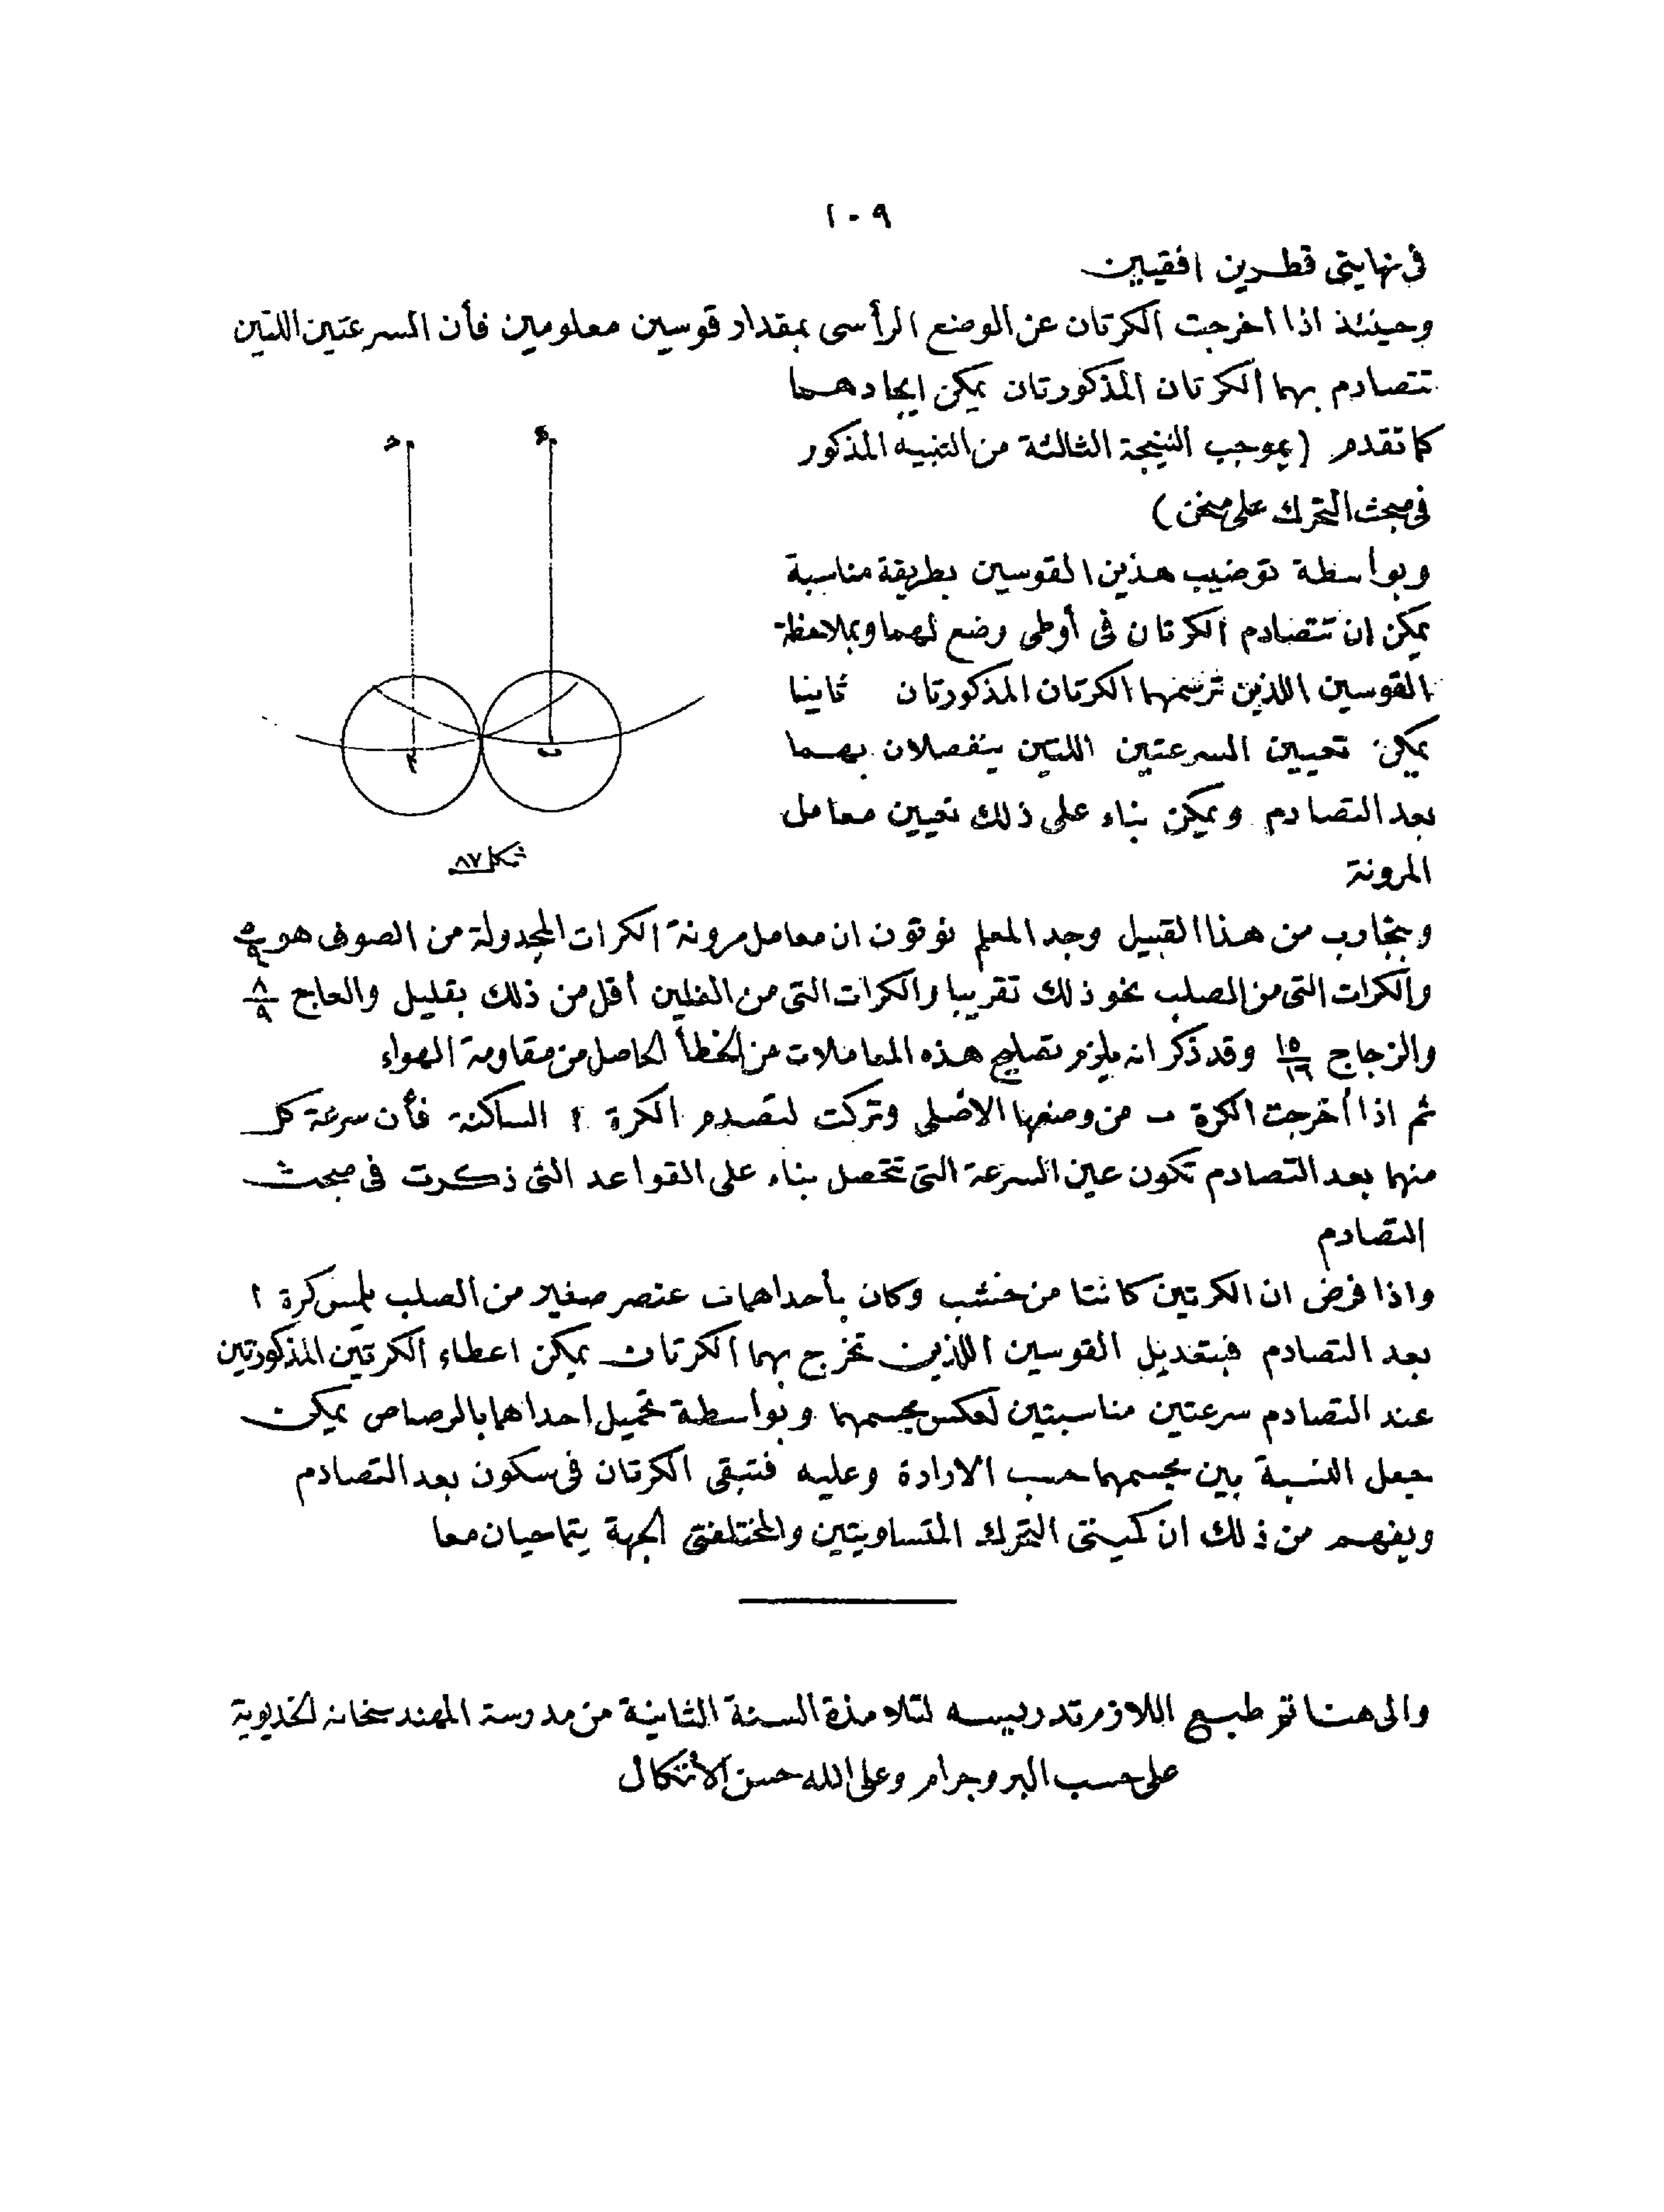 ١٠٩
فى نهايتى قطرين افقيين
وحينئذ اذا اخرجت الكرتان عن الوضع الرأسى بمقدار قوسين معلومين فأن السرعتين اللتين
تتصادم بهما الكرتان المذكورتان يمكن ايجادهما
كما تقدم (بموجب النتيجة الثالثة من التنبيه المذكور
فى مبحث التحرك على منحن)
وبواسطة توضيب هذين القوسين بطريقة مناسبة
يمكن ان تتصادم الكرتان فى أوطى وضع لهما وبملاحظة
القوسين اللذين ترسمهما الكرتان المذكورتان ثانيا
يمكن تعيين السرعتين اللتين ينفصلان بهما
بعد التصادم ويمكن بناء على ذلك تعيين معامل
المرونة
شكل ٨٧
وبتجارب من هذا القبيل وجد المعلم نوتون ان معامل مرونة الكرات المجدولة من الصوف هو ٥/٩
والكرات التى من الصلب نحو ذلك تقريبا والكرات التى من الفلين أقل من ذلك بقليل والعاج ٨/٩
والزجاج ١٥/١٦ وقد ذكر انه يلزم تصليح هذه المعاملات من الخطأ الحاصل من مقاومة الهواء
ثم اذا أخرجت الكرة ب من وضعها الاصلى وتركت لتصدم الكرة ا الساكنة فأن سرعة كل
منهما بعد التصادم تكون عين السرعة التى تتحصل بناء على القواعد التى ذكرت فى مبحث
التصادم
واذا فرض ان الكرتين كانتا من خشب وكان بأحداهمان عنصر صغير من الصلب يلمس كرة ا
بعد التصادم فبتعديل القوسين اللذين تخرج بهما الكرتان يمكن اعطاء الكرتين المذكورتين
عند التصادم سرعتين مناسبتين لعكس مجسمهما وبواسطة تحميل احداهما بالرصاص يمكن
جعل النسبة بين مجسمهما حسب الارادة وعليه فتبقى الكرتان فى سكون بعد التصادم
ويفهم من ذلك ان كميتى التحرك المتساويتين والمختلفتى الجهة يتماحيان معا
والى هنا تم طبع اللازم تدريسه لتلامذة السنة الثانية من مدرسة المهندسخانه الخديوية
على حسب البروجرام وعلى الله حسن الأتكال